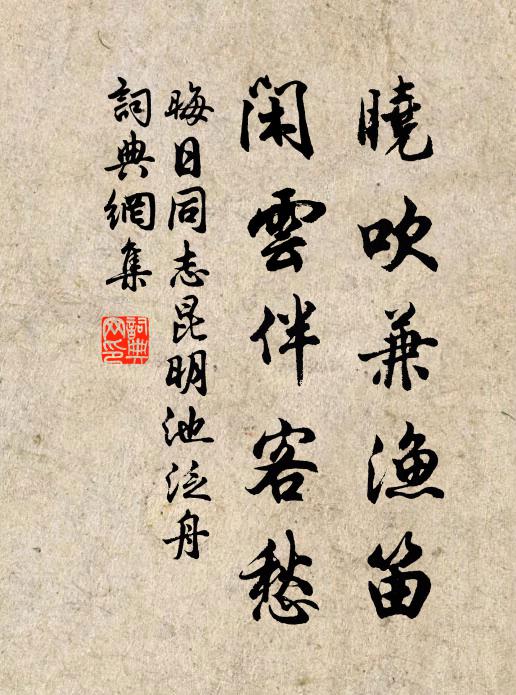 曉吹兼漁笛
閑雲伴客愁
晦日同志昆明池泛舟
詞典網集
詞典
网印